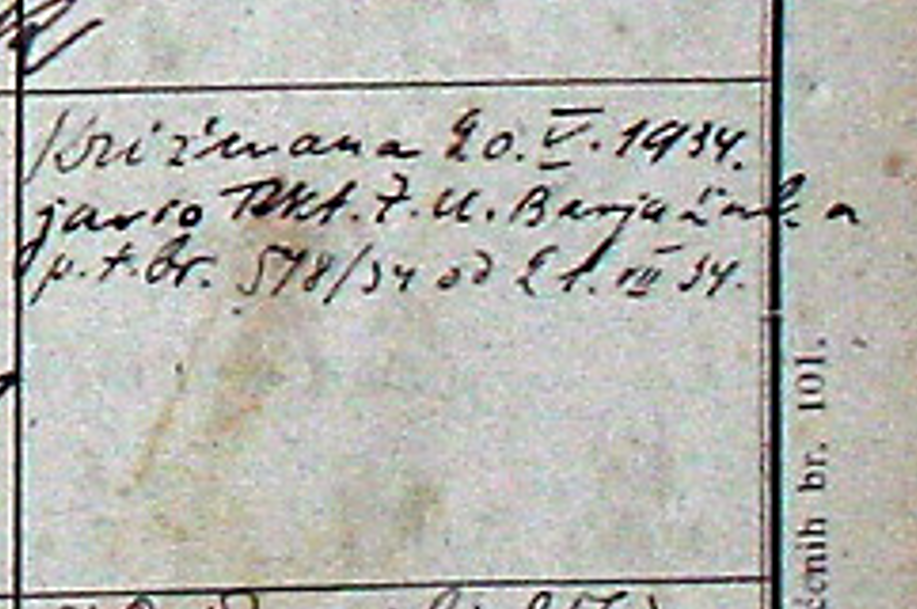 Križmana 20. V. 1934.
javio Rkt. Ž. U. Banja Luka
p. t. br. 578/34 od 21. III 34.
čenih br. 101.